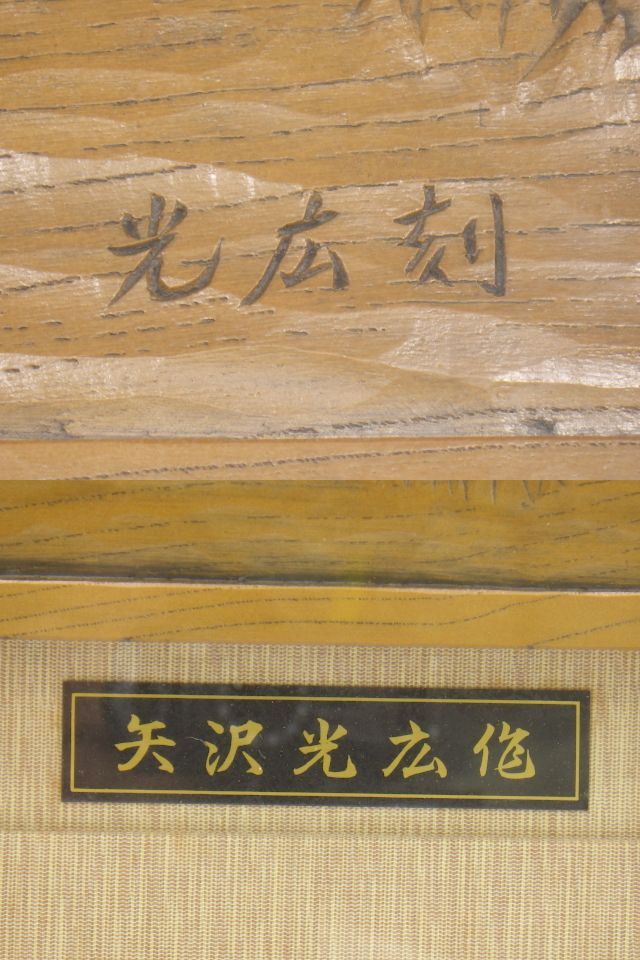 光広刻
矢沢光広作